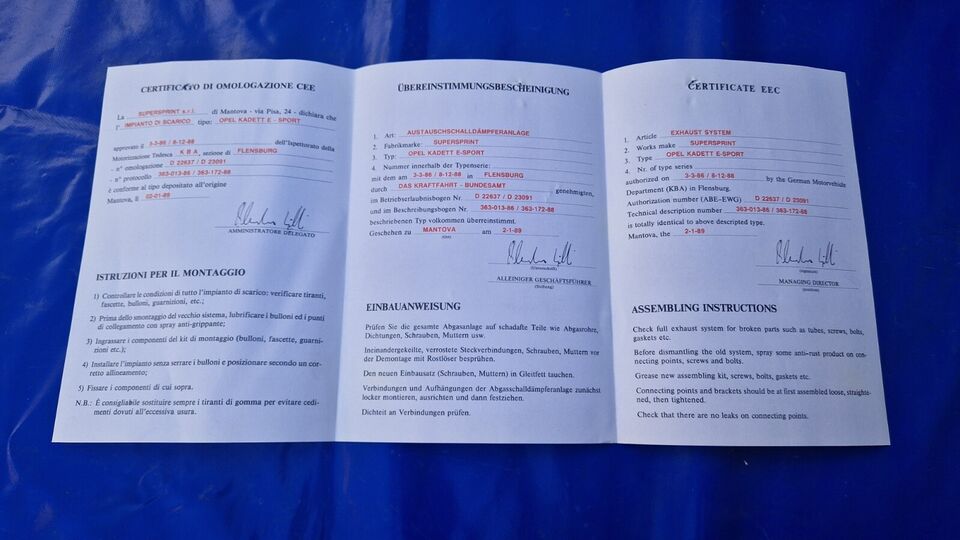 CERTIFICATO DI OMOLOGAZIONE CEE
La SUPERSPRINT s.r.l. di Mantova - via Pisa, 24 - dichiara che
l' IMPIANTO DI SCARICO tipo: OPEL KADETT E - SPORT
approvato il 3-3-86 / 8-12-88 dell'Ispettorato della
Motorizzazione Tedesca K B A, sezione di FLENSBURG
- n° omologazione D 22637 / D 23091
- n° protocollo 363-013-86 / 363-172-88
è conforme al tipo depositato all'origine
Mantova, lì 02-01-89
AMMINISTRATORE DELEGATO
ISTRUZIONI PER IL MONTAGGIO
1) Controllare le condizioni di tutto l'impianto di scarico: verificare tiranti,
fascette, bulloni, guarnizioni, etc.;
2) Prima dello smontaggio del vecchio sistema, lubrificare i bulloni ed i punti
di collegamento con spray anti-grippante;
3) Ingrassare i componenti del kit di montaggio (bulloni, fascette, guarni-
zioni etc.);
4) Installare l'impianto senza serrare i bulloni e posizionare secondo un cor-
retto allineamento;
5) Fissare i componenti di cui sopra.
N.B.: È consigliabile sostituire sempre i tiranti di gomma per evitare cedi-
menti dovuti all'eccessiva usura.
ÜBEREINSTIMMUNGSBESCHEINIGUNG
1. Art: AUSTAUSCHSCHALLDÄMPFERANLAGE
2. Fabrikmarke: SUPERSPRINT
3. Typ: OPEL KADETT E-SPORT
4. Nummer innerhalb der Typenserie:
mit dem am 3-3-86 / 8-12-88 in FLENSBURG
durch DAS KRAFTFAHRT - BUNDESAMT genehmigten,
im Betriebserlaubnisbogen Nr. D 22637 / D 23091
und im Beschreibungsbogen Nr. 363-013-86 / 363-172-88
beschriebenen Typ volkommen übereinstimmt.
Geschehen zu MANTOVA am 2-1-89
(Ort)
(Unterschrift)
ALLEINIGER GESCHÄFTSFÜHRER
(Stellung)
EINBAUANWEISUNG
Prüfen Sie die gesamte Abgasanlage auf schadafte Teile wie Abgasrohre,
Dichtungen, Schrauben, Muttern usw.
Ineinandergekeilte, verrostete Steckverbindungen, Schrauben, Muttern vor
der Demontage mit Rostlöser besprühen.
Den neuen Einbausatz (Schrauben, Muttern) in Gleitfett tauchen.
Verbindungen und Aufhängungen der Abgasschalldämpferanlage zunächst
locker montieren, ausrichten und dann festziehen.
Dichteit an Verbindungen prüfen.
CERTIFICATE EEC
1. Article EXHAUST SYSTEM
2. Works make SUPERSPRINT
3. Type OPEL KADETT E-SPORT
4. Nr. of type series
authorized on 3-3-86 / 8-12-88 by the German Motorvehicle
Department (KBA) in Flensburg.
Authorization number (ABE-EWG) D 22637 / D 23091
Technical description number 363-013-86 / 363-172-88
is totally identical to above descripted type.
Mantova, the 2-1-89
(signature)
MANAGING DIRECTOR
(position)
ASSEMBLING INSTRUCTIONS
Check full exhaust system for broken parts such as tubes, screws, bolts,
gaskets etc.
Before dismantling the old system, spray some anti-rust product on con-
necting points, screws and bolts.
Grease new assembling kit, screws, bolts, gaskets etc.
Connecting points and brackets should be at first assembled loose, straighte-
ned, then tightened.
Check that there are no leaks on connecting points.